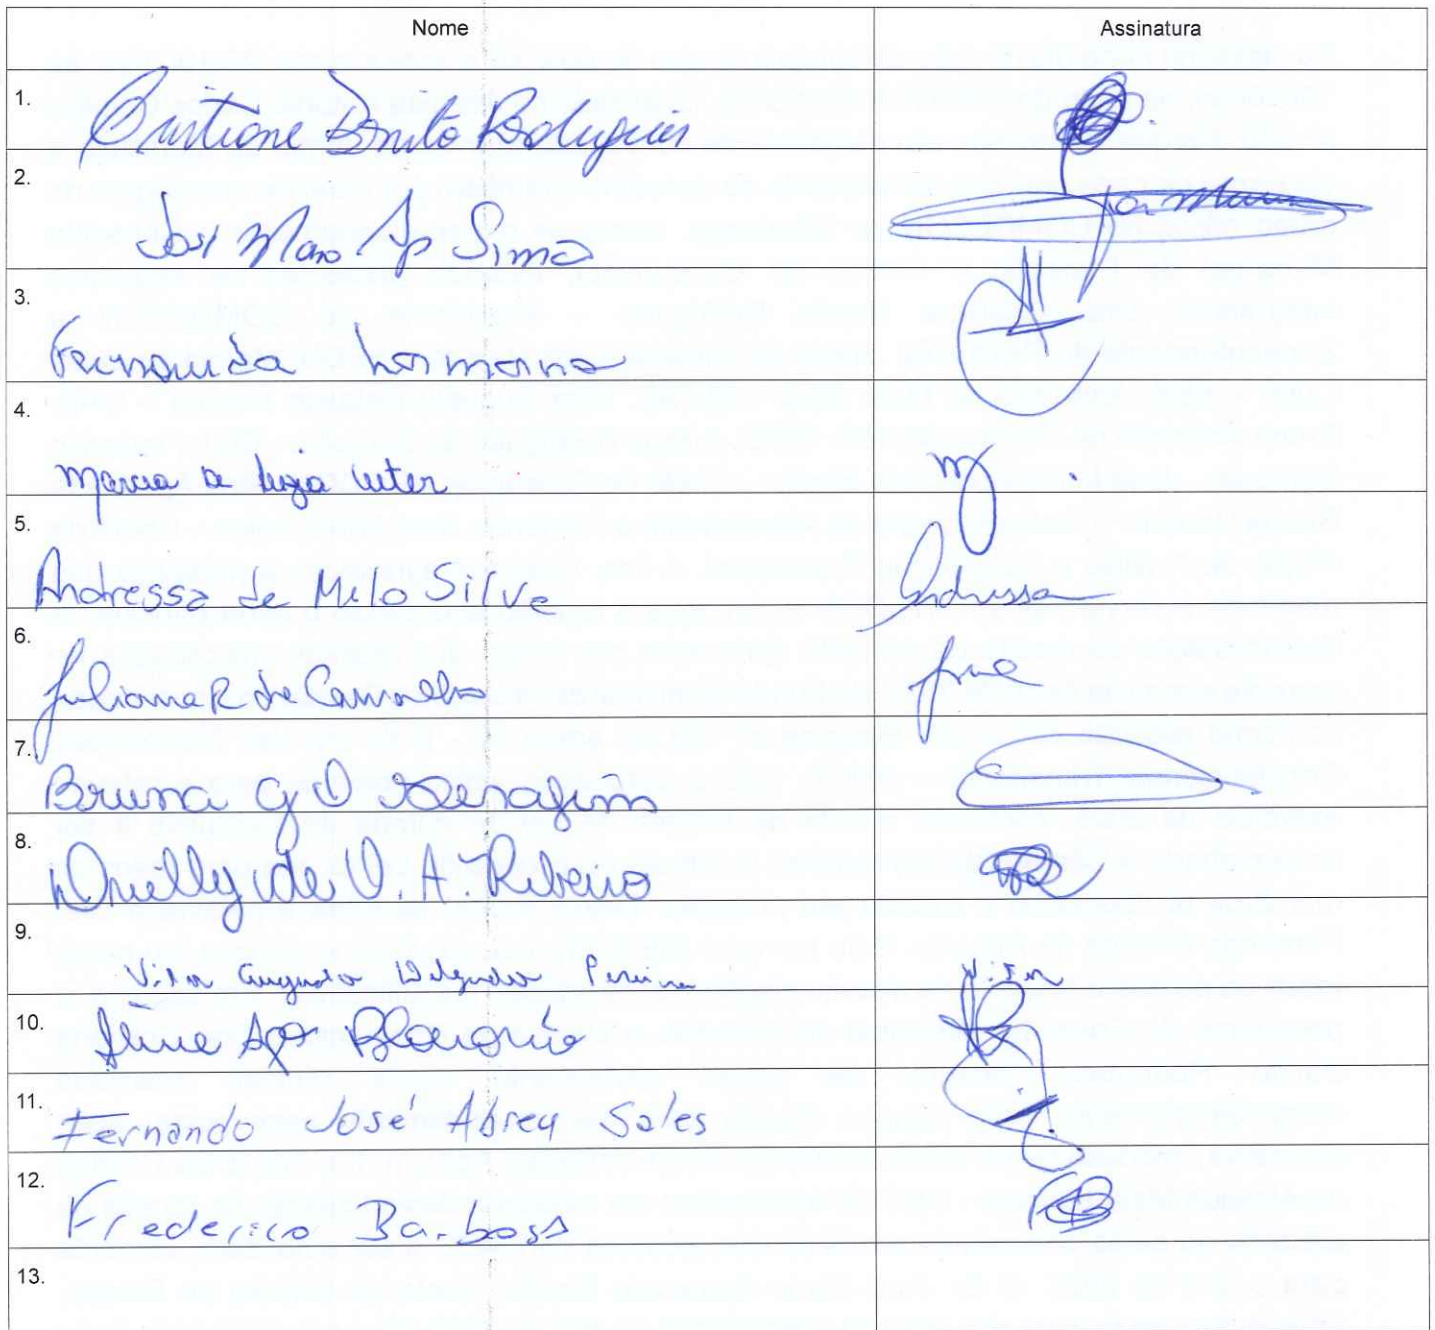 Nome Assinatura
1. Cristiane Bonito Rodrigues
2. José Maro Ap Lima José Mauro
3. Fernanda
4. Marcia de
5. Andressa de Melo Silva Andressa
6. Juliana R de Carvalho Ju
7. Bruna G D Serafim
8. de O. A. Ribeiro
9. Vitor Augusto Delgado Pereira Vitor
10. Aline Ap
11. Fernando José Abreu Sales
12. Frederico Barbosa
13.